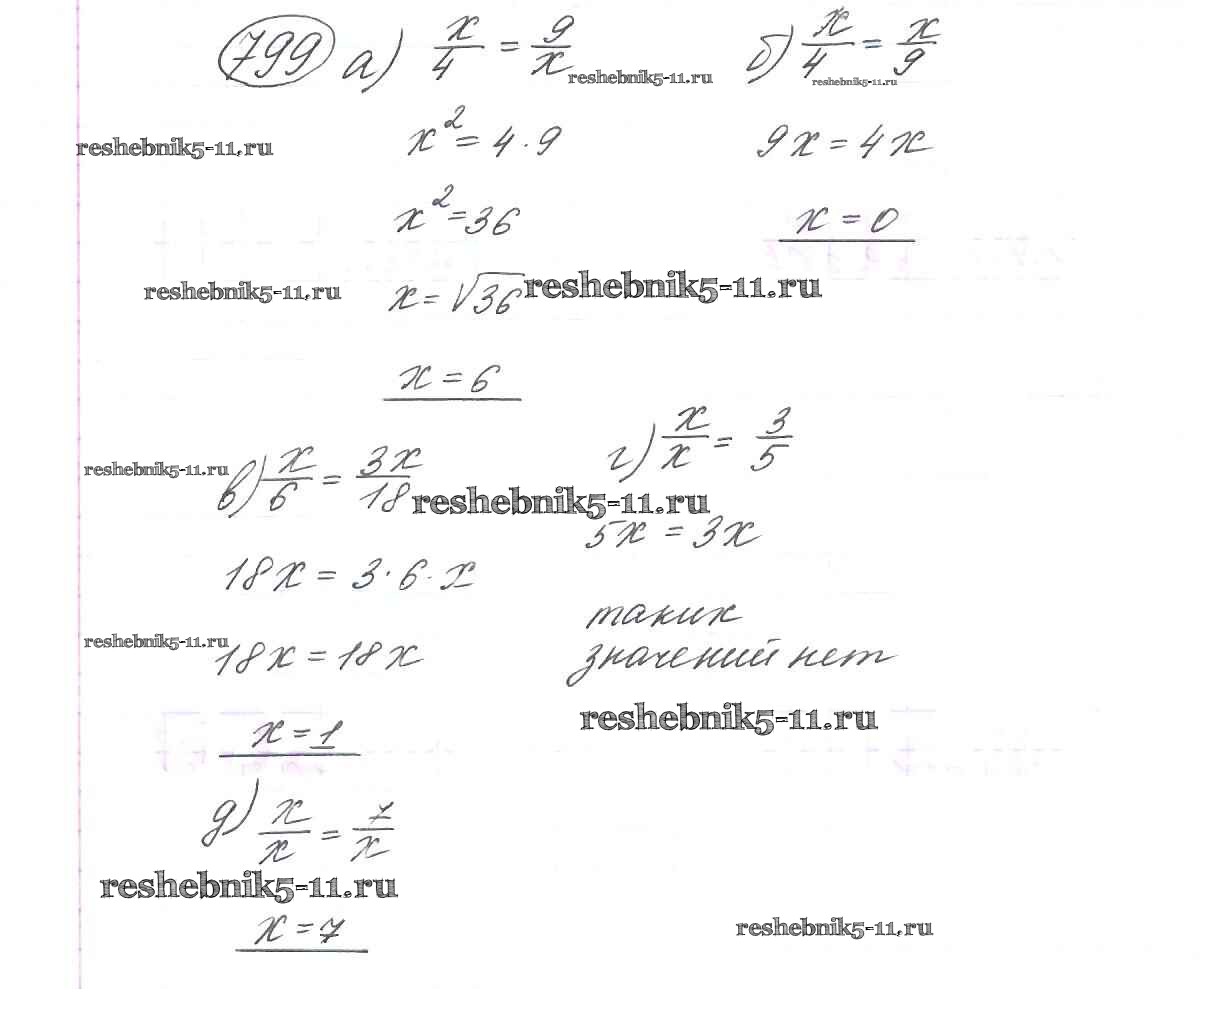 799 а) x/4 = 9/x reshebnik5-11.ru б) x/4 = x/9 reshebnik5-11.ru
reshebnik5-11.ru x² = 4 · 9 9x = 4x
x² = 36 x = 0
reshebnik5-11.ru x = √36 reshebnik5-11.ru
x = 6
reshebnik5-11.ru в) x/6 = 3x/18 reshebnik5-11.ru г) x/x = 3/5
5x = 3x
18x = 3 · 6 · x
таких
reshebnik5-11.ru 18x = 18x значений нет
reshebnik5-11.ru
x = 1
д) x/x = 7/x
reshebnik5-11.ru
x = 7 reshebnik5-11.ru